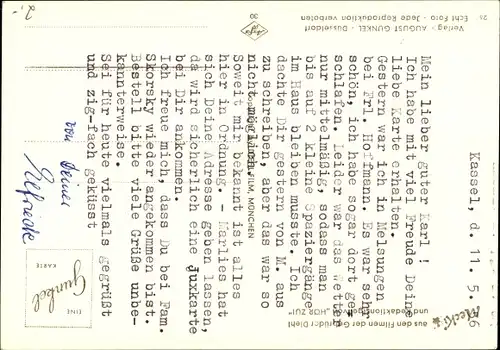 Kassel, d. 11. 5.
Mein lieber guter Karl !
Ich habe mit viel Freude Deine
liebe Karte erhalten.
Gestern war ich in Melsungen
bei Frl. Hoffmann. Es war sehr
schön, ich habe sogar dort ge-
schlafen. Leider war das Wetter
nur mittelmäßig, sodass man
bis auf 2 kleine Spaziergänge
im Haus bleiben musste. Ich
dachte Dir gestern von M. aus
zu schreiben, aber das war so
nicht möglich.
Soweit mir bekannt ist alles
hier in Ordnung. - Marlies hat
sich Deine Adresse geben lassen,
da wird sicherlich eine Juxkarte
bei Dir ankommen.
Ich freue mich, dass Du bei Fam.
Skorsky wieder angekommen bist.
Bestell bitte viele Grüße unbe-
kannterweise.
Sei für heute vielmals gegrüßt
und zig-fach geküsst
von Deiner
Elfriede
Mecki
aus den Filmen der Gebrüder Diehl
und Redaktionsigel von "HÖR ZU!"
FILM, MÜNCHEN
Verlag: AUGUST GUNKEL Düsseldorf
Echt Foto - Jede Reproduktion verboten
Agfa
30
EINE
Gunkel
KARTE
2,-